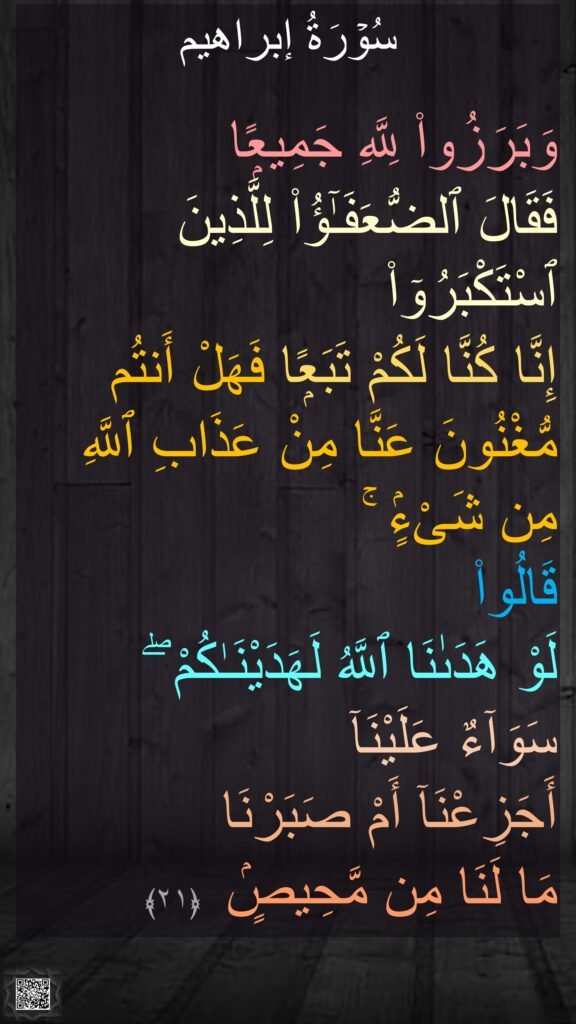 سُوۡرَةُ إبراهيم
وَبَرَزُوا۟ لِلَّهِ جَمِيعًۭا
فَقَالَ ٱلضُّعَفَـٰٓؤُا۟ لِلَّذِينَ
ٱسْتَكْبَرُوٓا۟
إِنَّا كُنَّا لَكُمْ تَبَعًۭا فَهَلْ أَنتُم
مُّغْنُونَ عَنَّا مِنْ عَذَابِ ٱللَّهِ
مِن شَىْءٍۢ ۚ
قَالُوا۟
لَوْ هَدَىٰنَا ٱللَّهُ لَهَدَيْنَـٰكُمْ ۖ
سَوَآءٌ عَلَيْنَآ
أَجَزِعْنَآ أَمْ صَبَرْنَا
مَا لَنَا مِن مَّحِيصٍۢ ﴿٢١﴾